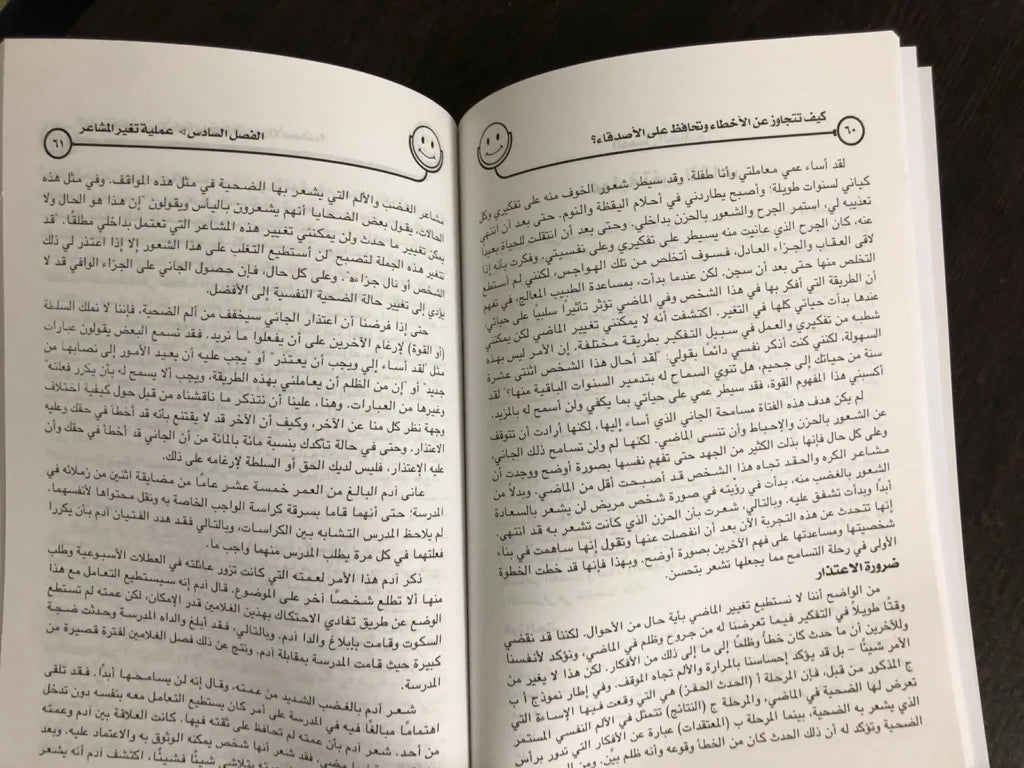 ٦٠
كيف تتجاوز عن الأخطاء وتحافظ على الأصدقاء؟
لقد أساء عمي معاملتي وأنا طفلة. وقد سيطر شعور الخوف منه على تفكيري وكل
كياني لسنوات طويلة؛ وأصبح يطاردني في أحلام اليقظة والنوم. حتى بعد أن أنتهي
تعذيبه لي، استمر الجرح والشعور بالحزن بداخلي. وحتى بعد أن انتقلت للحياة بعيداً
عنه، كان الجرح الذي عانيت منه يسيطر على تفكيري وعلى نفسيتي. وفكرت بأنه إذا
لاقى العقاب والجزاء العادل، فسوف أتخلص من تلك الهواجس، لكنني لم أستطع
التخلص منها حتى بعد أن سجن. لكن عندما بدأت، بمساعدة الطبيب المعالج، في تفهم
أن الطريقة التي أفكر بها في هذا الشخص وفي الماضي تؤثر تأثيراً سلبيًا على حياتي،
عندها بدأت حياتي كلها في التغير. اكتشفت أنه لا يمكنني تغيير الماضي لكن يمكنني
شطبه من تفكيري والعمل في سبيل التفكير بطريقة مختلفة. إن الأمر ليس بهذه
السهولة، لكنني كنت أذكر نفسي دائمًا بقولي: "لقد أحال هذا الشخص اثنتي عشرة
سنة من حياتك إلى جحيم، هل تنوي السماح له بتدمير السنوات الباقية منها؟" لقد
أكسبني هذا المفهوم القوة، فقد سيطر عمي على حياتي بما يكفي ولن أسمح له بالمزيد.
لم يكن هدف هذه الفتاة مسامحة الجاني الذي أساء إليها، لكنها أرادت أن تتوقف
عن الشعور بالحزن والإحباط وأن تنسى الماضي. لكنها لم ولن تسامح ذلك الجاني.
وعلى كل حال فإنها بذلت الكثير من الجهد حتى تفهم نفسها بصورة أوضح ووجدت أن
مشاعر الكره والحقد تجاه هذا الشخص قد أصبحت أقل من الماضي. وبدلاً من
الشعور بالغضب منه، بدأت في رؤيته في صورة شخص مريض لن يشعر بالسعادة
أبدًا وبدأت تشفق عليه. وبالتالي، شعرت بأن الحزن الذي كانت تشعر به قد انتهى.
إنها تتحدث عن هذه التجربة الآن بعد أن انفصلت عنها وتقول إنها ساهمت في بناء
شخصيتها ومساعدتها على فهم الآخرين بصورة أوضح. وبهذا فإنها قد خطت الخطوة
الأولى في رحلة التسامح مما يجعلها تشعر بتحسن.
ضرورة الاعتذار
من الواضح أننا لا نستطيع تغيير الماضي بأية حال من الأحوال. لكننا قد نقضي
وقتًا طويلاً في التفكير فيما تعرضنا له من جروح وظلم في الماضي، ونؤكد لأنفسنا
وللآخرين أن ما حدث كان خطأ وظلمًا إلى ما إلى ذلك من الأفكار. لكن هذا لا يغير من
الأمر شيئًا – بل قد يؤكد إحساسنا بالمرارة والألم تجاه الموقف. وفي إطار نموذج أ ب
ج المذكور من قبل، فإن المرحلة أ (الحدث الحفز) هي التي وقعت فيها الإساءة التي
تعرض لها الضحية في الماضي، والمرحلة ج (النتائج) تتمثل في الألم النفسي المستمر
الذي يشعر به الضحية، بينما المرحلة ب (المعتقدات) عبارة عن الأفكار التي تدور برأس
الضحية وتؤكد له أن ذلك الحدث كان من الخطأ وقوعه وأنه ظلم بيِّن. ومن
الفصل السادس ◁ عملية تغير المشاعر
٦١
مشاعر الغضب والألم التي يشعر بها الضحية في مثل هذه المواقف. وفي مثل هذه
الحالات، يقول بعض الضحايا أنهم يشعرون باليأس ويقولون "إن هذا هو الحال ولا
يمكن تغيير ما حدث ولن يمكنني تغيير هذه المشاعر التي تعتمل بداخلي مطلقًا. "قد
تتغير هذه الجملة لتصبح "لن أستطيع التغلب على هذا الشعور إلا إذا اعتذر لي ذلك
الشخص أو نال جزاءه". وعلى كل حال، فإن حصول الجاني على الجزاء الوافي قد لا
يؤدي إلى تغيير حالة الضحية النفسية إلى الأفضل.
حتى إذا فرضنا أن اعتذار الجاني سيخفف من ألم الضحية، فإننا لا نملك السلطة
(أو القوة) لإرغام الآخرين على أن يفعلوا ما نريد. فقد نسمع البعض يقولون عبارات
مثل "لقد أساء إلي ويجب أن يعتذر" أو "يجب عليه أن يعيد الأمور إلى نصابها من
جديد" أو "إن من الظلم أن يعاملني بهذه الطريقة، ويجب ألا يسمح له بأن يكرر فعلته"
وغيرها من العبارات. وهنا، علينا أن نتذكر ما ناقشناه من قبل حول كيفية اختلاف
وجهة نظر كل منا عن الآخر، وكيف أن الآخر قد لا يقتنع بأنه قد أخطأ في حقك وعليه
الاعتذار. وحتى في حالة تأكدك بنسبة مائة بالمائة من أن الجاني قد أخطأ في حقك وأن
عليه الإعتذار، فليس لديك الحق أو السلطة لإرغامه على ذلك.
عانى آدم البالغ من العمر خمسة عشر عامًا من مضايقة اثنين من زملائه في
المدرسة؛ حتى أنهما قاما بسرقة كراسة الواجب الخاصة به ونقل محتواها لأنفسهما.
لم يلاحظ المدرس التشابه بين الكراسات، وبالتالي فقد هدد الفتيان آدم بأن يكررا
فعلتهما في كل مرة يطلب المدرس منهما واجب ما.
ذكر آدم هذا الأمر لعمته التي كانت تزور عائلته في العطلات الأسبوعية وطلب
منها ألا تطلع شخصًا آخر على الموضوع. قال آدم إنه سيستطيع التعامل مع هذا
الوضع عن طريق تفادي الاحتكاك بهذين الغلامين قدر الإمكان. لكن عمته لم تستطع
السكوت وقامت بإبلاغ والدا آدم. وبالتالي، فقد أبلغ والداه المدرسة وحدثت ضجة
كبيرة حيث قامت المدرسة بمقابلة آدم. ونتج عن ذلك فصل الغلامين لفترة قصيرة من
المدرسة.
شعر آدم بالغضب الشديد من عمته، وقال إنه لن يسامحها أبدًا. فقد تلقى
اهتمامًا مبالغًا فيه في المدرسة على أمر كان يستطيع التعامل معه بنفسه بدون تدخل
من أحد. شعر آدم بأن عمته لم تحافظ على ثقته فيها. كانت العلاقة بين آدم وعمته
فقد شعر أنها شخص يمكنه الوثوق به والاعتماد عليه. وبعد
يتلاشى شيئًا فشيئًا، اكتشف آدم أنه يشعر